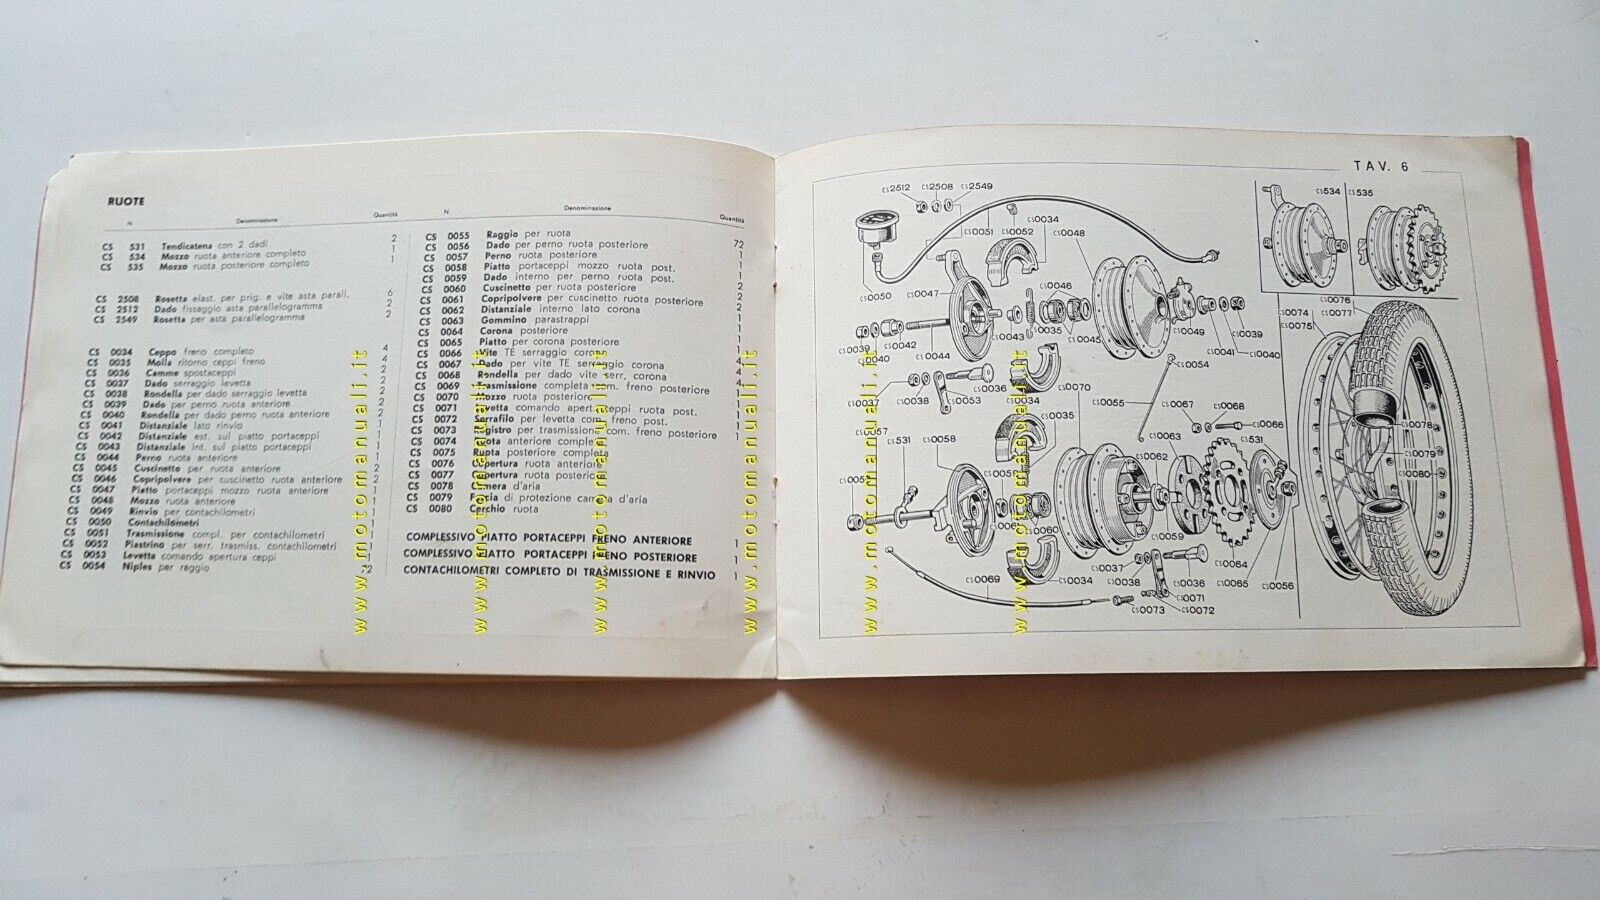 RUOTE
N. Denominazione Quantità
CS 531 Tendicatena con 2 dadi 2
CS 534 Mozzo ruota anteriore completo 1
CS 535 Mozzo ruota posteriore completo 1
CS 2508 Rosetta elast. per prig. e vite asta parall. 6
CS 2512 Dado fissaggio asta parallelogramma 2
CS 2549 Rosetta per asta parallelogramma 2
CS 0034 Ceppo freno completo 4
CS 0035 Molla ritorno ceppi freno 4
CS 0036 Camme spostaceppi 2
CS 0037 Dado serraggio levetta 2
CS 0038 Rondella per dado serraggio levetta 2
CS 0039 Dado per perno ruota anteriore 2
CS 0040 Rondella per dado perno ruota anteriore 2
CS 0041 Distanziale lato rinvio 1
CS 0042 Distanziale est. sul piatto portaceppi 1
CS 0043 Distanziale int. sul piatto portaceppi 1
CS 0044 Perno ruota anteriore 1
CS 0045 Cuscinetto per ruota anteriore 2
CS 0046 Copripolvere per cuscinetto ruota anteriore 2
CS 0047 Piatto portaceppi mozzo ruota anteriore 1
CS 0048 Mozzo ruota anteriore 1
CS 0049 Rinvio per contachilometri 1
CS 0050 Contachilometri 1
CS 0051 Trasmissione compl. per contachilometri 1
CS 0052 Piastrino per serr. trasmiss. contachilometri 1
CS 0053 Levetta comando apertura ceppi 1
CS 0054 Niples per raggio 72
N. Denominazione Quantità
CS 0055 Raggio per ruota 72
CS 0056 Dado per perno ruota posteriore
CS 0057 Perno ruota posteriore
CS 0058 Piatto portaceppi mozzo ruota post.
CS 0059 Dado interno per perno ruota post.
CS 0060 Cuscinetto per ruota posteriore
CS 0061 Copripolvere per cuscinetto ruota posteriore
CS 0062 Distanziale interno lato corona
CS 0063 Gommino parastrappi
CS 0064 Corona posteriore
CS 0065 Piatto per corona posteriore
CS 0066 Vite TE serraggio corona
CS 0067 Dado per vite TE serraggio corona
CS 0068 Rondella per dado vite serr. corona
CS 0069 Trasmissione completa com. freno posteriore
CS 0070 Mozzo ruota posteriore
CS 0071 Levetta comando apert. ceppi ruota post.
CS 0072 Serrafilo per levetta com. freno post.
CS 0073 Registro per trasmissione com. freno posteriore
CS 0074 Ruota anteriore completa
CS 0075 Ruota posteriore completa
CS 0076 Copertura ruota anteriore
CS 0077 Copertura ruota posteriore
CS 0078 Camera d'aria
CS 0079 Fascia di protezione camera d'aria
CS 0080 Cerchio ruota
COMPLESSIVO PIATTO PORTACEPPI FRENO ANTERIORE 1
COMPLESSIVO PIATTO PORTACEPPI FRENO POSTERIORE 1
CONTACHILOMETRI COMPLETO DI TRASMISSIONE E RINVIO 1
www.motomanuali.it
www.motomanuali.it
www.motomanuali.it
www.motomanuali.it
TAV. 6
CS2512 CS2508 CS2549
CS0051 CS0052 CS0034
CS0048
CS534 CS535
CS0050 CS0047
CS0046
CS0076
CS0077
CS0074
CS0075
CS0039 CS0042
CS0040 CS0044 CS0043 CS0035 CS0045
CS0049 CS0039
CS0041 CS0040
CS0054
CS0037 CS0038 CS0053 CS0036 CS0070
CS0034
CS0055 CS0067 CS0068
CS0066
CS0057
CS531 CS0058 CS0035
CS0063 CS531
CS0062
CS0078
CS0079
CS0080
CS0060
CS0059
CS0064
CS0065 CS0056
CS0037
CS0038 CS0036
CS0069 CS0034
CS0071
CS0073 CS0072
www.motomanuali.it
www.motomanuali.it